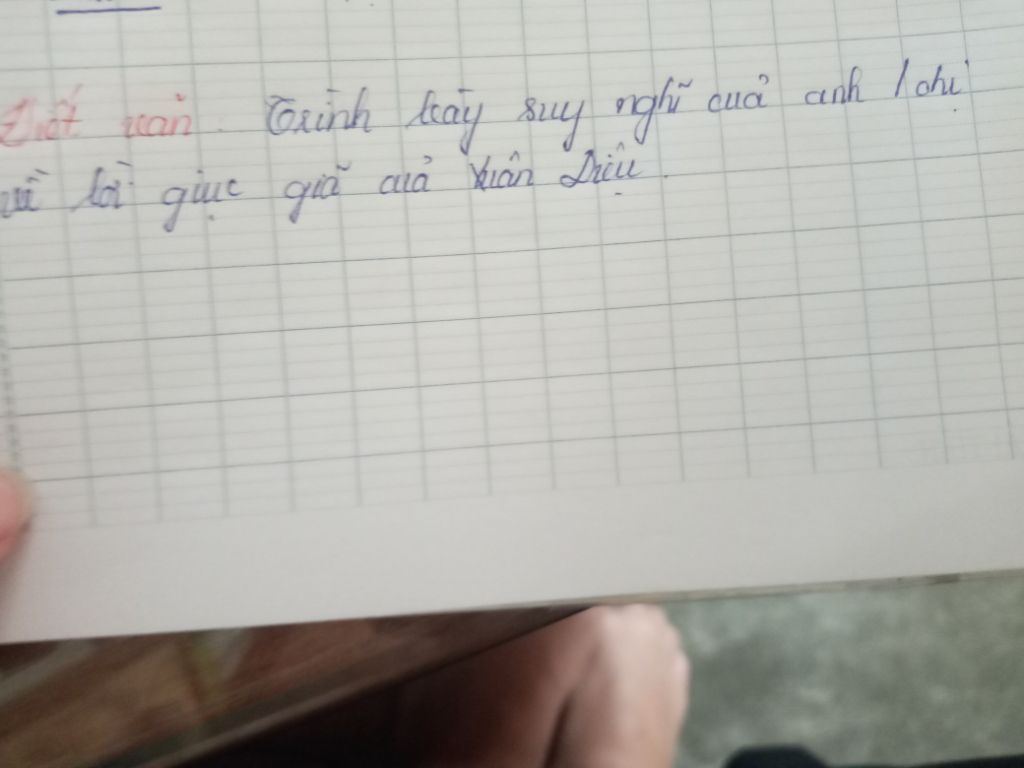 Viết văn. Trình bày suy nghĩ của anh / chị
về lời giục giã của Xuân Diệu.